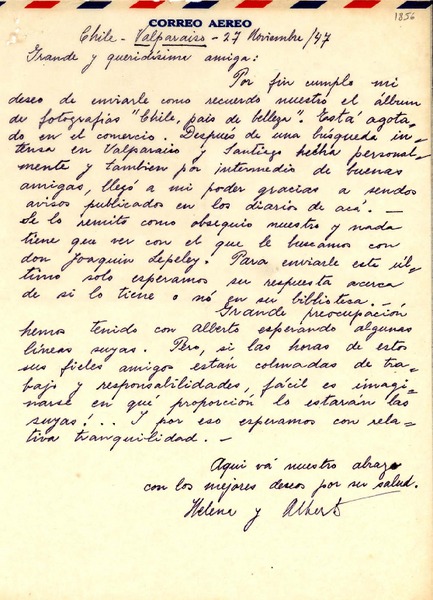 CORREO AEREO
1856
Chile - Valparaiso - 27 Noviembre/47
Grande y queridísima amiga:
Por fin cumplo mi
deseo de enviarle como recuerdo nuestro el álbum
de fotografías "Chile, país de belleza". Está agota-
do en el comercio. Después de una búsqueda in-
tensa en Valparaiso y Santiago hecha personal-
mente y tambien por intermedio de buenas
amigas, llegó a mi poder gracias a sendos
avisos publicados en los diarios de acá. —
Se lo remito como obsequio nuestro y nada
tiene que ver con el que le buscamos con
don Joaquin Lepeley. Para enviarle este úl-
timo solo esperamos su respuesta acerca
de si lo tiene o nó en su biblioteca. —
Grande preocupación
hemos tenido con Alberto esperando algunas
líneas suyas. Pero, si las horas de estos
sus fieles amigos están colmadas de tra-
bajo y responsabilidades, fácil es imagi-
narse en qué proporción lo estarán las
suyas!.. Y por eso esperamos con rela-
tiva tranquilidad. —
Aqui vá nuestro abrazo
con los mejores deseos por su salud.
Helena y Alberto